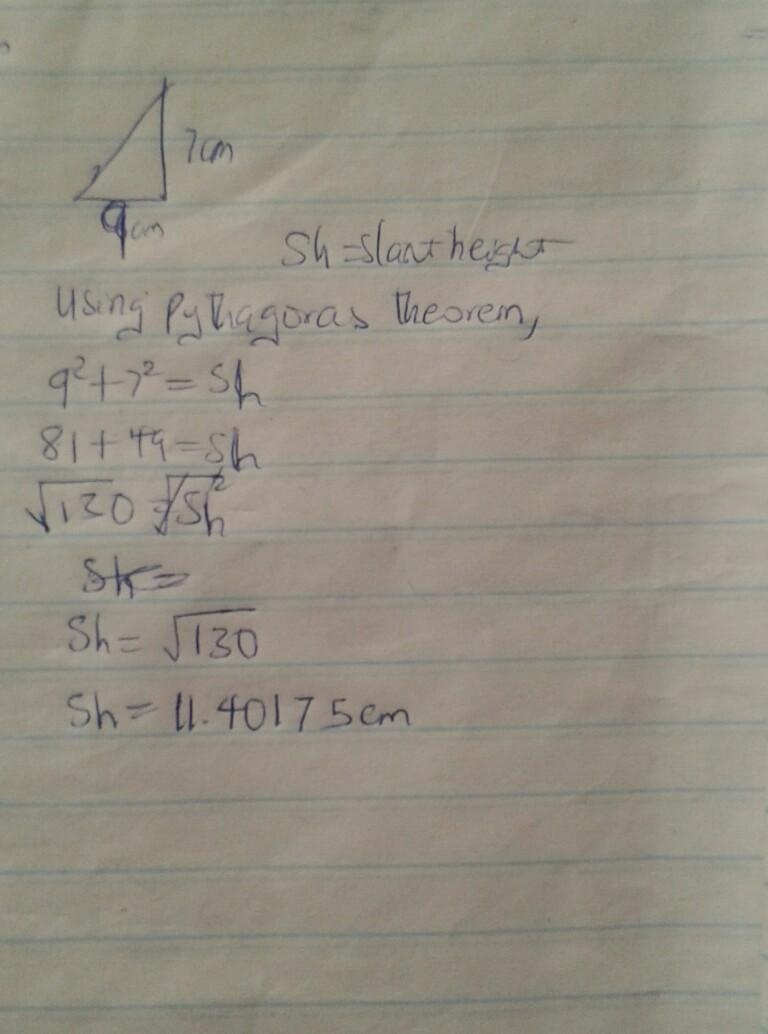 7cm
9cm
Sh = Slant height
Using Pythagoras theorem,
9² + 7² = Sh
81 + 49 = Sh
√130 = √Sh²
Sh =
Sh = √130
Sh = 11.40175cm